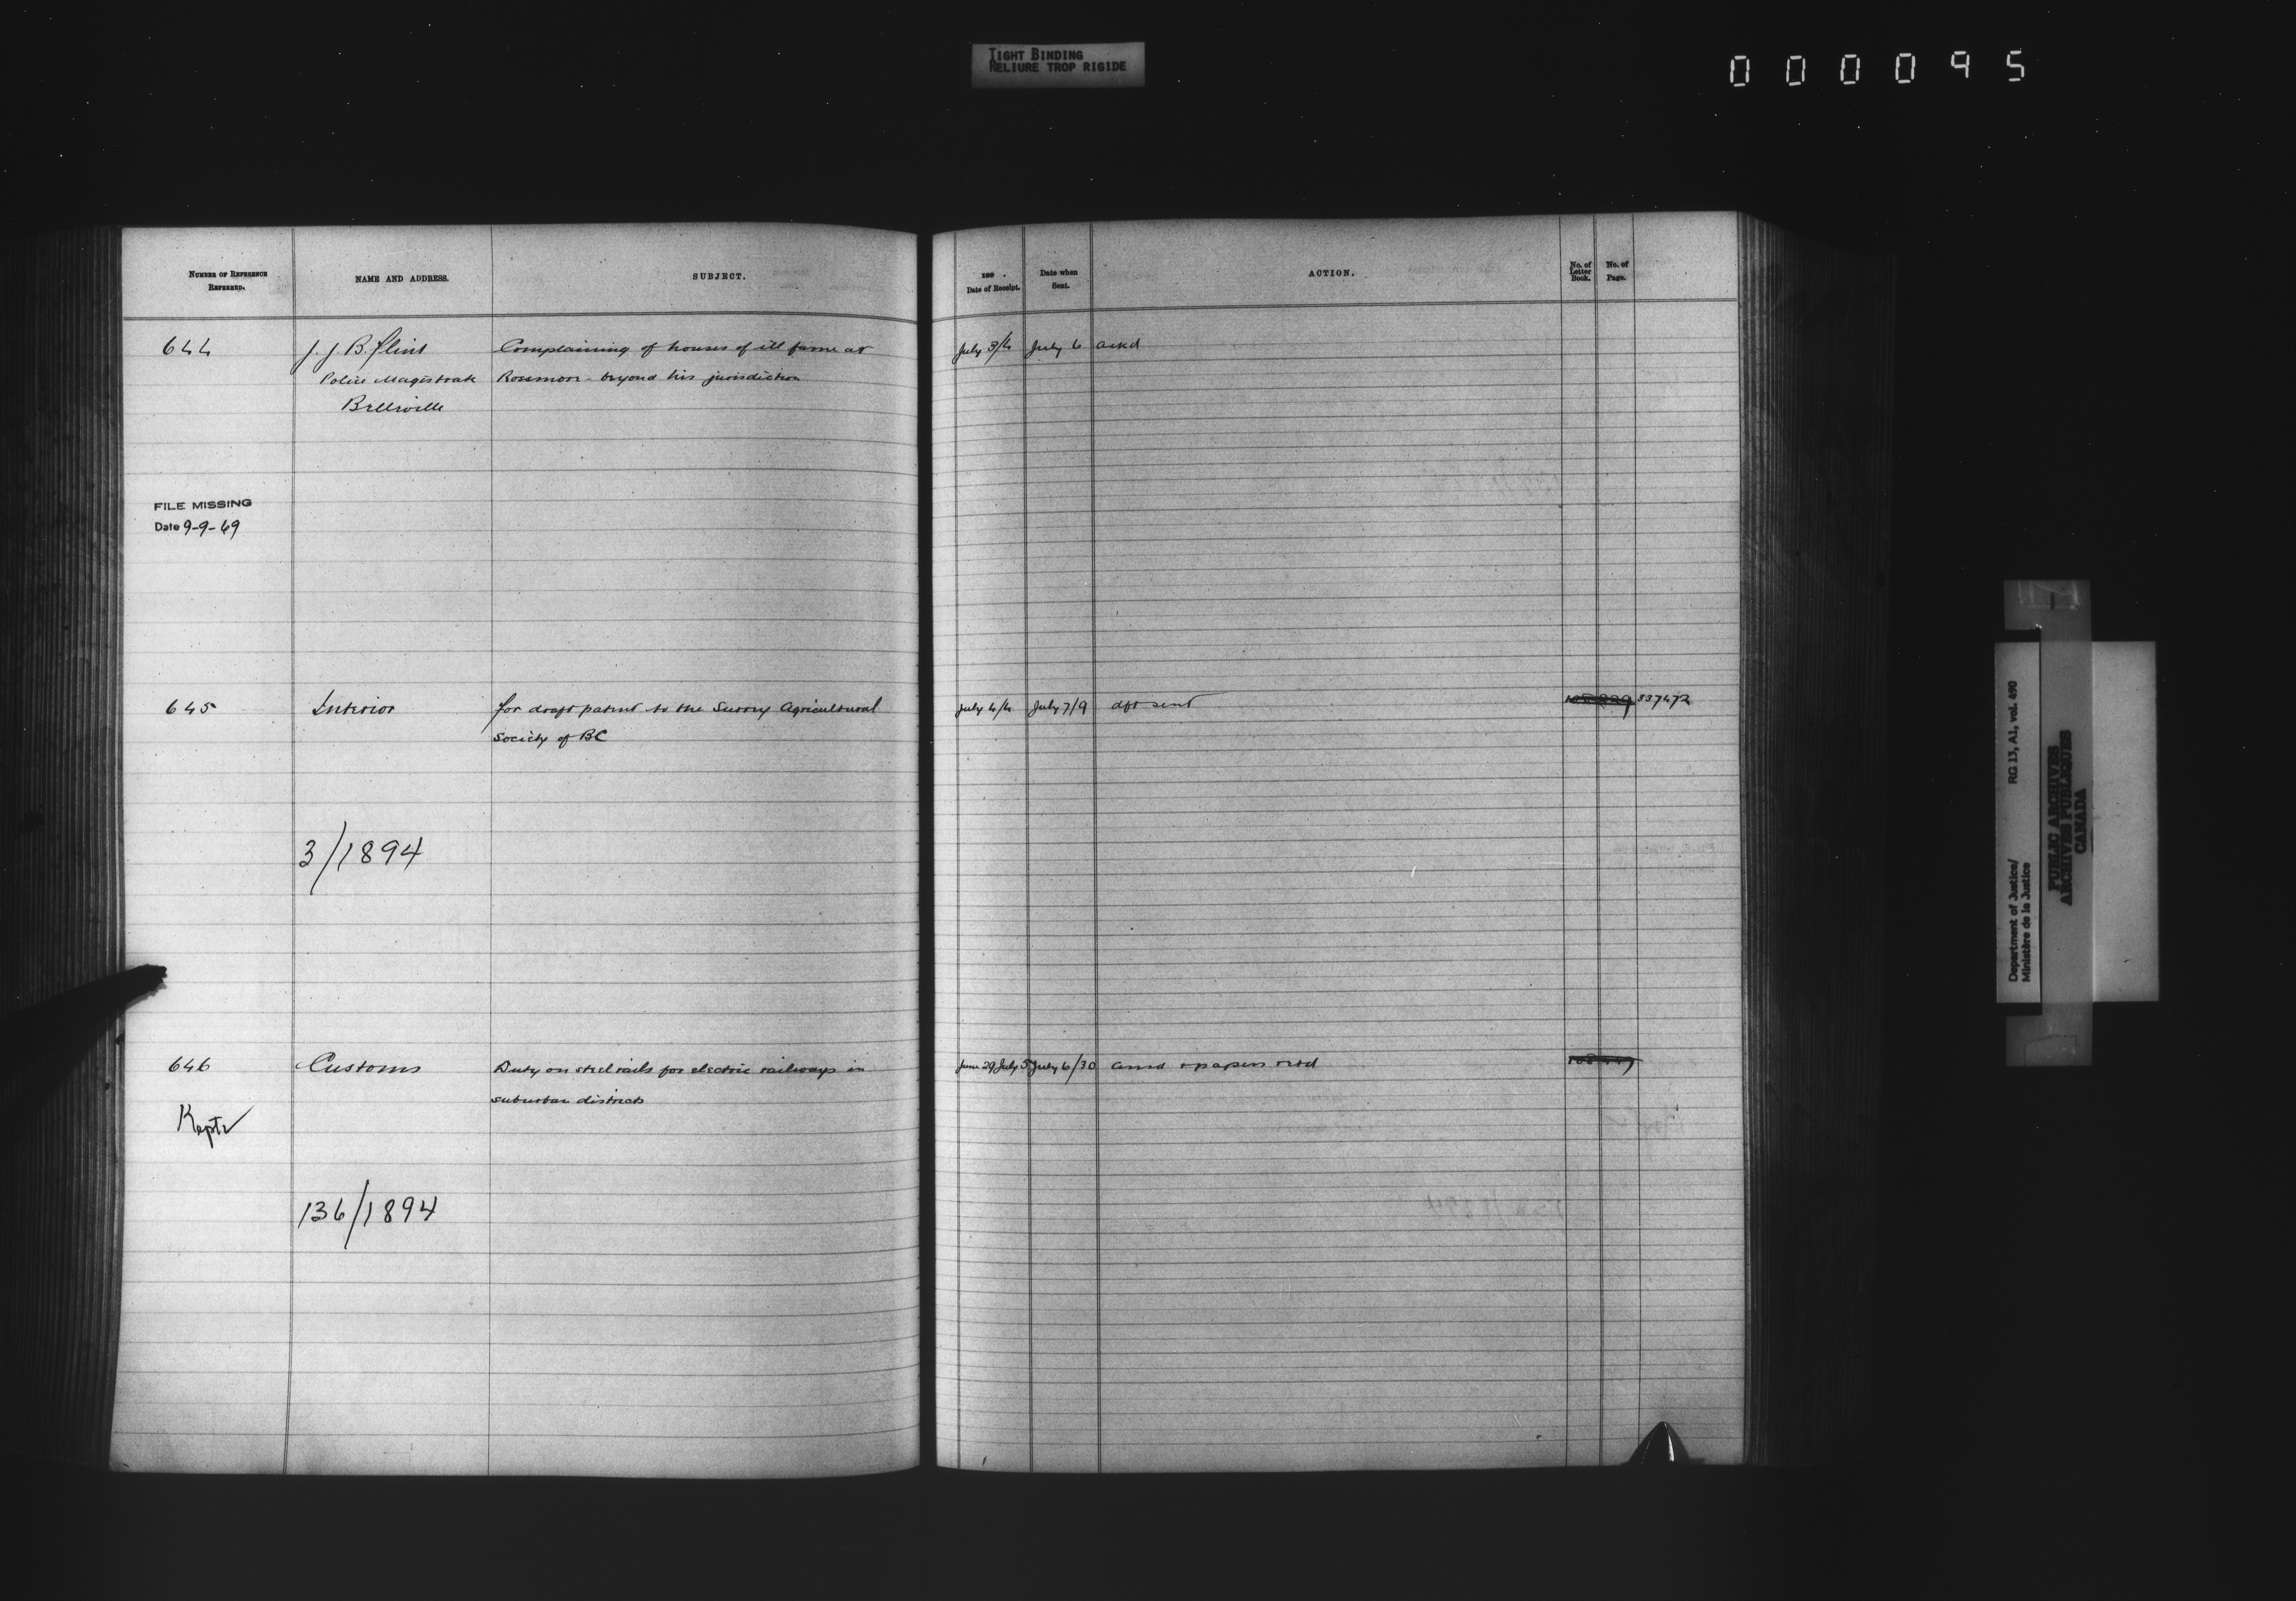 TIGHT BINDING
RELIURE TROP RIGIDE
000095
NUMBER OF REFERENCE REFERRED.
NAME AND ADDRESS.
SUBJECT.
189 .
Date of Receipt.
Date when Sent.
ACTION.
No. of Letter Book.
No. of Page.
644
J. J. B. Flint
Complaining of houses of ill fame at
July 3/4
July 6
ackd
Police Magistrate
Rosemore - beyond his jurisdiction
Belleville
FILE MISSING
Date 9-9-69
645
Interior
for draft patent to the Surrey Agricultural
July 4/6
July 7/9
dft sent
337472
Society of BC
3/1894
646
Customs
Duty on steel rails for electric railways in
June 29 July 5
July 6/30
papers retd
suburban districts
Kept
136/1894
Department of Justice/
Ministère de la Justice
RG 13, A1, vol. 490
PUBLIC ARCHIVES
ARCHIVES PUBLIQUES
CANADA